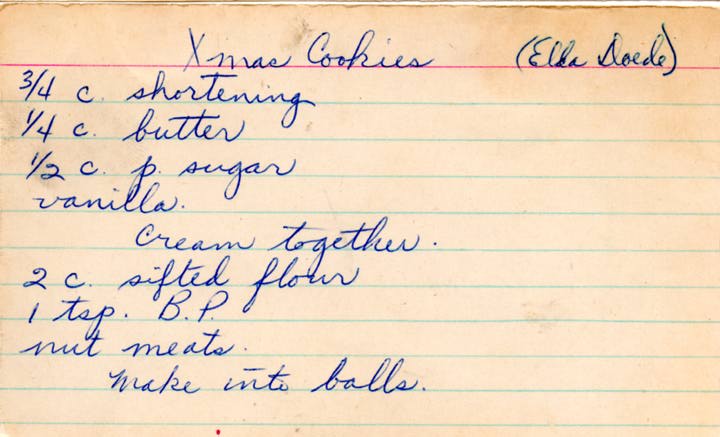 Xmas Cookies (Elda Doede)
3/4 c. shortening
1/4 c. butter
1/2 c. p. sugar
vanilla.
cream together.
2 c. sifted flour
1 tsp. B.P.
nut meats.
Make into balls.